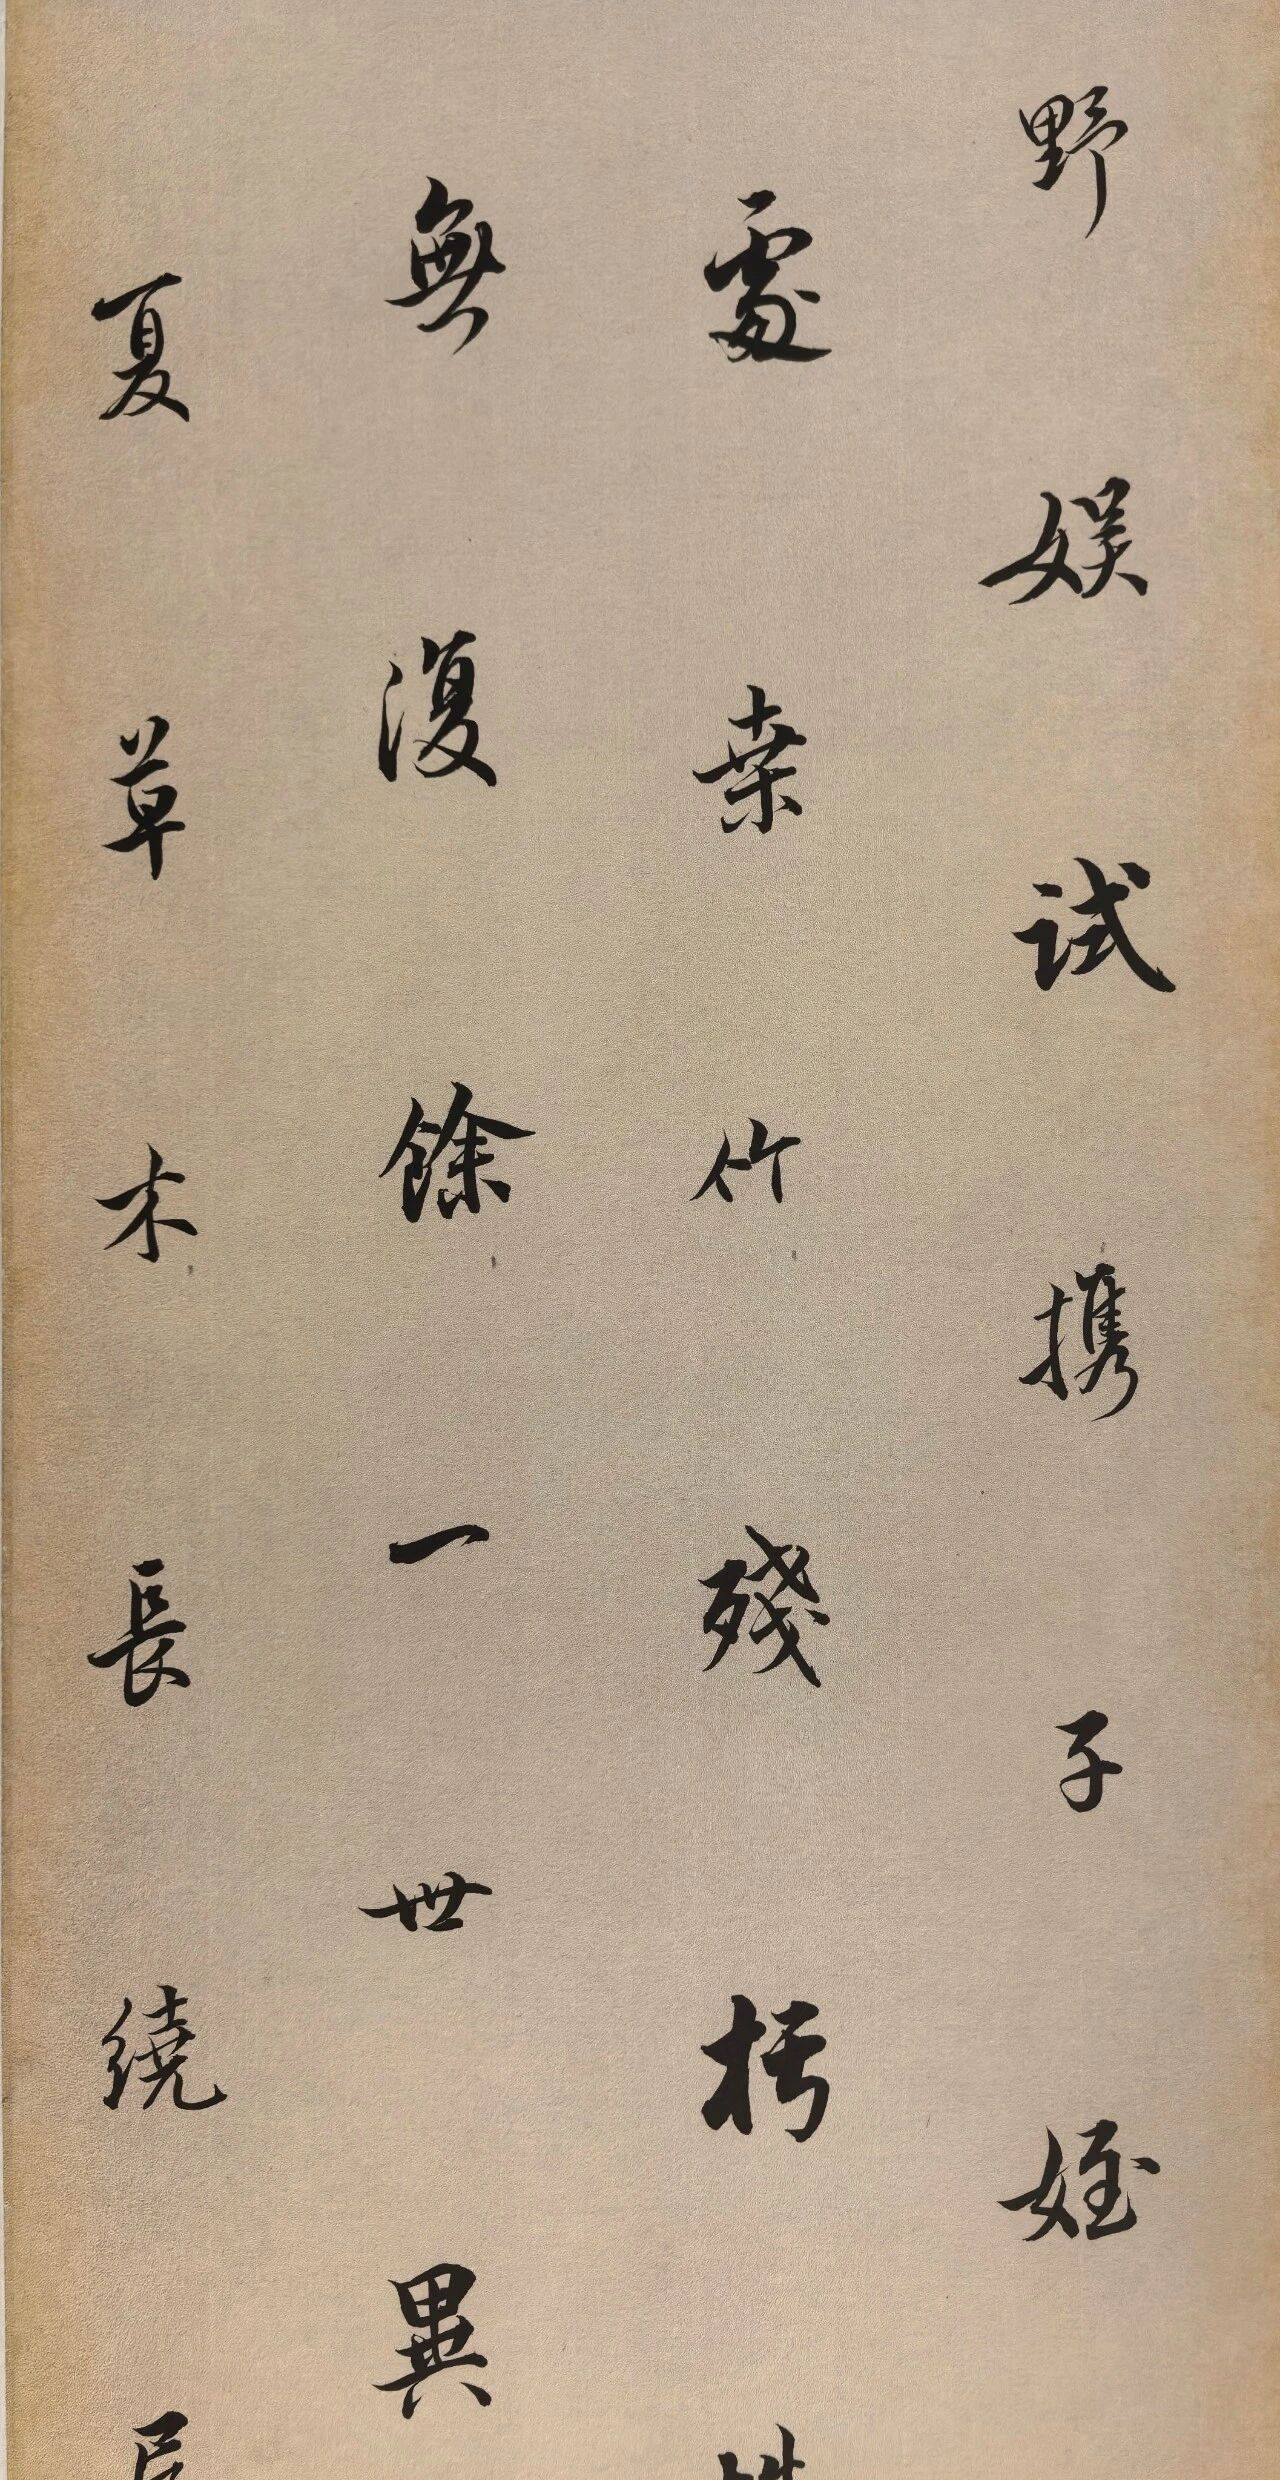 野娱试携子姪
處桒竹殘杇
無復餘一世異
夏草木長繞